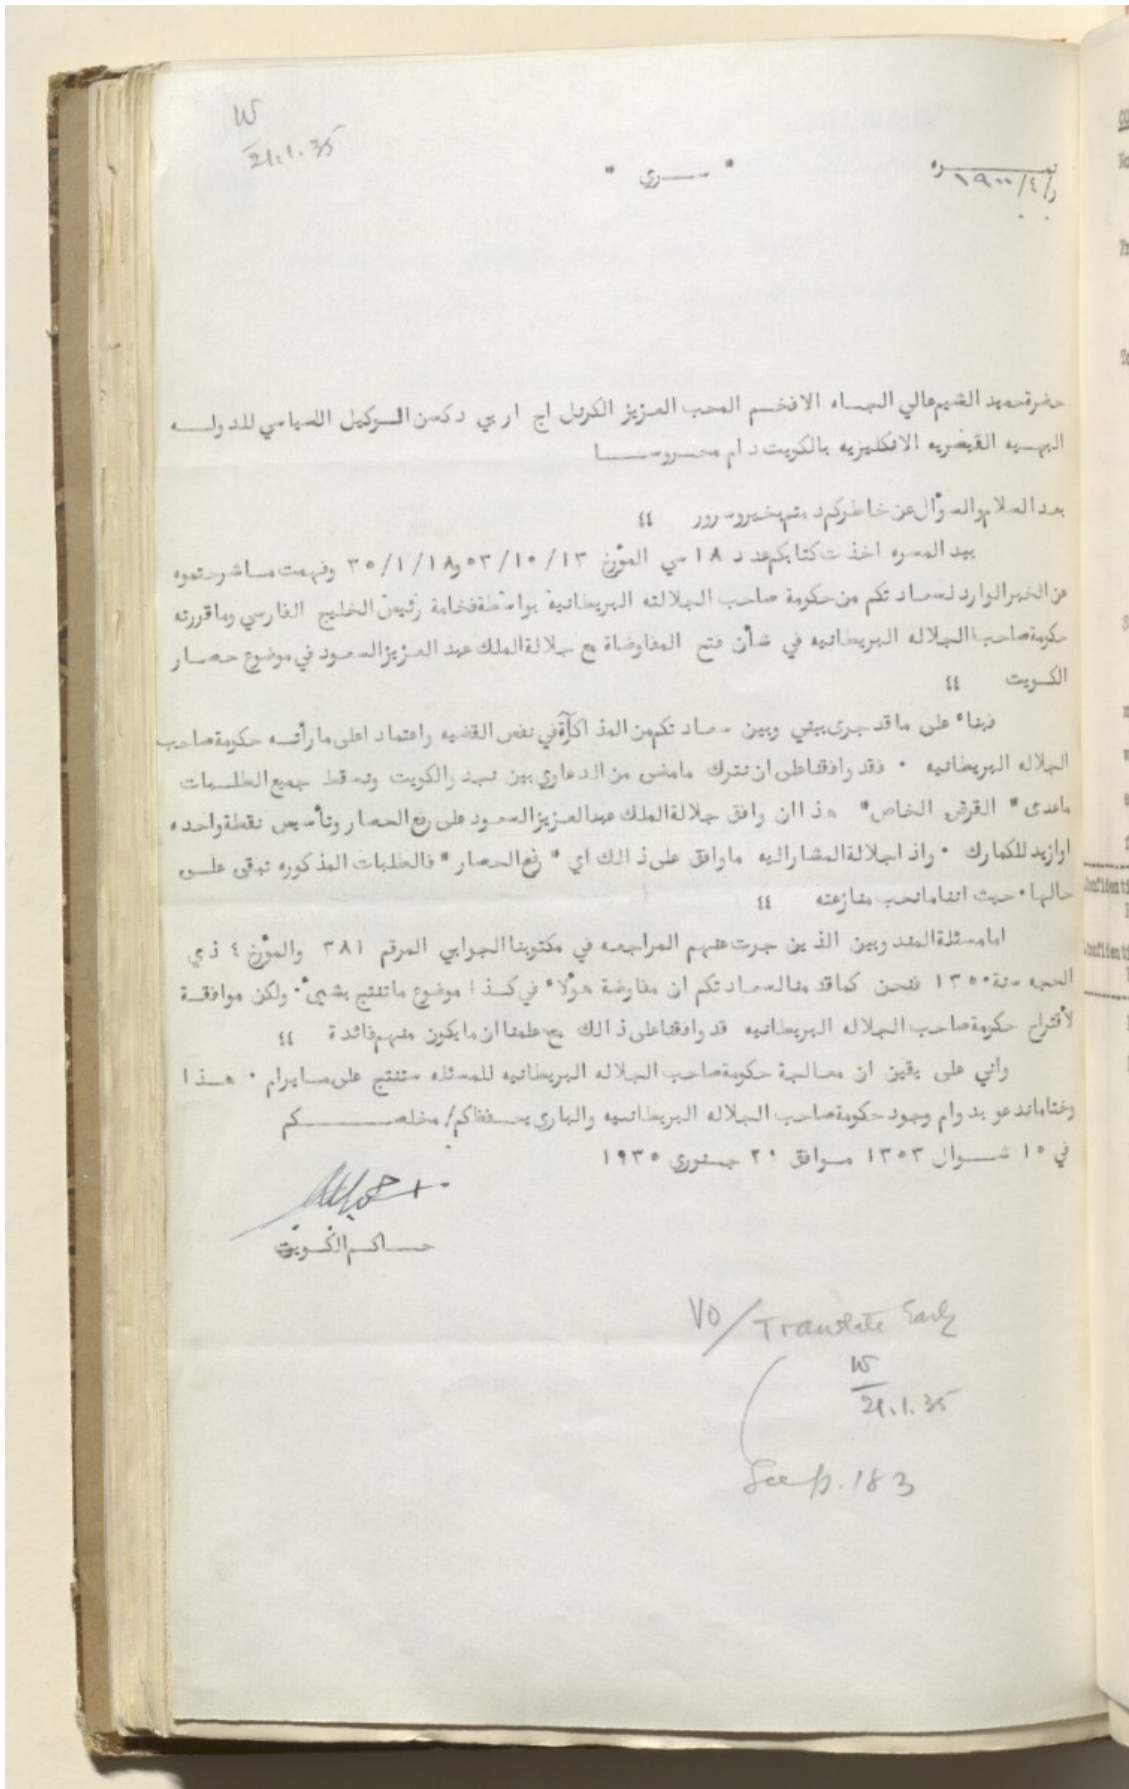 W
21.1.35
" ســري "
نمـــره
ر/٤/١٩٠٠
حضرة حميد الشيم عالي الجـاه الافخـم المحب العـزيز الكرنل اچ ار بي دكسن الـوكيل السياسي للدولـه
البهـيه القيصريه الانكليزيه بالكويت دام محـروســا
بعد السلام والسؤال عن خاطركم دمتم بخير وسرور ٤٤
بيد المسره اخذت كتابكم عدد ١٨ سي المؤرخ ٥٣/١٠/١٣ و٣٥/١/١٨ وفهمت مـا شرحتموه
عن الخبر الوارد لسعادتكم من حكومة صاحب الجلالته البريطانية بواسطة فخامة رئيس الخليج الفارسي وما قررته
حكومة صاحب الجلاله البريطانيه في شأن فتح المفاوضاة مع جلالة الملك عبد العـزيز السعود في موضوع حصـار
الكـويت ٤٤
فبناء على ما قد جرى بيني وبين سعادتكم من المذاكرة في نفس القضيه واعتمادا على ما رأته حكومة صاحب
الجلاله البريطانيه ٠ فقد وافقنا على ان نترك مامضى من الدعاوي بين نجد والكويت ونسقط جميع الطلبـات
ماعدى " القرض الخاص " هذا ان وافق جلالة الملك عبد العـزيز السعود على رفع الحصار وتأسيس نقطة واحده
او ازيد للكمارك ٠ واذا جلالة المشار اليه ماوافق على ذالك اي " رفع الحصار " فالطلبات المذكوره تبقى علـى
حالها ٠ حيث اننا مانحب منازعته ٤٤
اما مسئلة المندوبين الذين جرت عنهم المراجعه في مكتوبنا الجوابي المرقم ٣٨١ والمؤرخ ٤ ذي
الحجه سنة ١٣٥٠ فنحن كما قدمنا لسعادتكم ان مفاوضة هؤلاء في كذا موضوع ماتنتج بشيئ ٠ ولكن موافقـة
لأقتراح حكومة صاحب الجلاله البريطانيه قد وافقنا على ذالك مع علمنا ان مايكون منهم فائدة ٤٤
واني على يقين ان معـالجة حكومة صاحب الجلاله البريطانيه للمسئله ستنتج على مـايرام ٠ هـذا
وختاما ندعو بدوام وجود حكومة صاحب الجلاله البريطانـيه والباري يحـفظكم/ مخلصـــكم
في ١٥ شـوال ١٣٥٣ مـوافق ٢٠ جـنوري ١٩٣٥
حـاكـم الكـويت
VO/ Translate Early
W
21.1.35
See p. 183